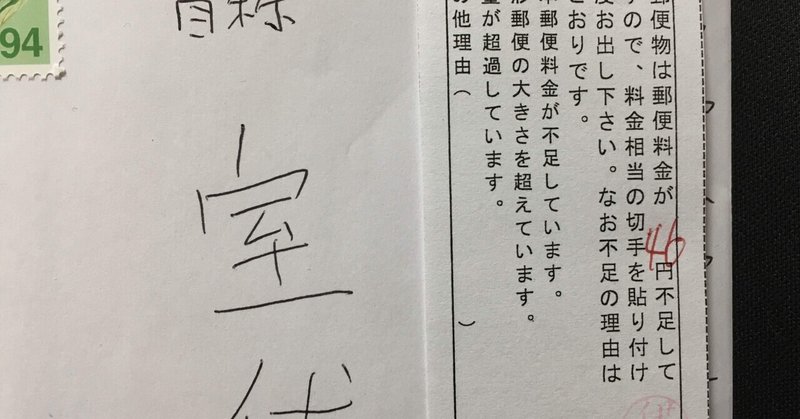 郵便物は郵便料金が46円不足して
すので、料金相当の切手を貼り付け
度お出し下さい。なお不足の理由は
とおりです。
本郵便料金が不足しています。
形郵便の大きさを超えています。
量が超過しています。
の他理由（　）
室
94